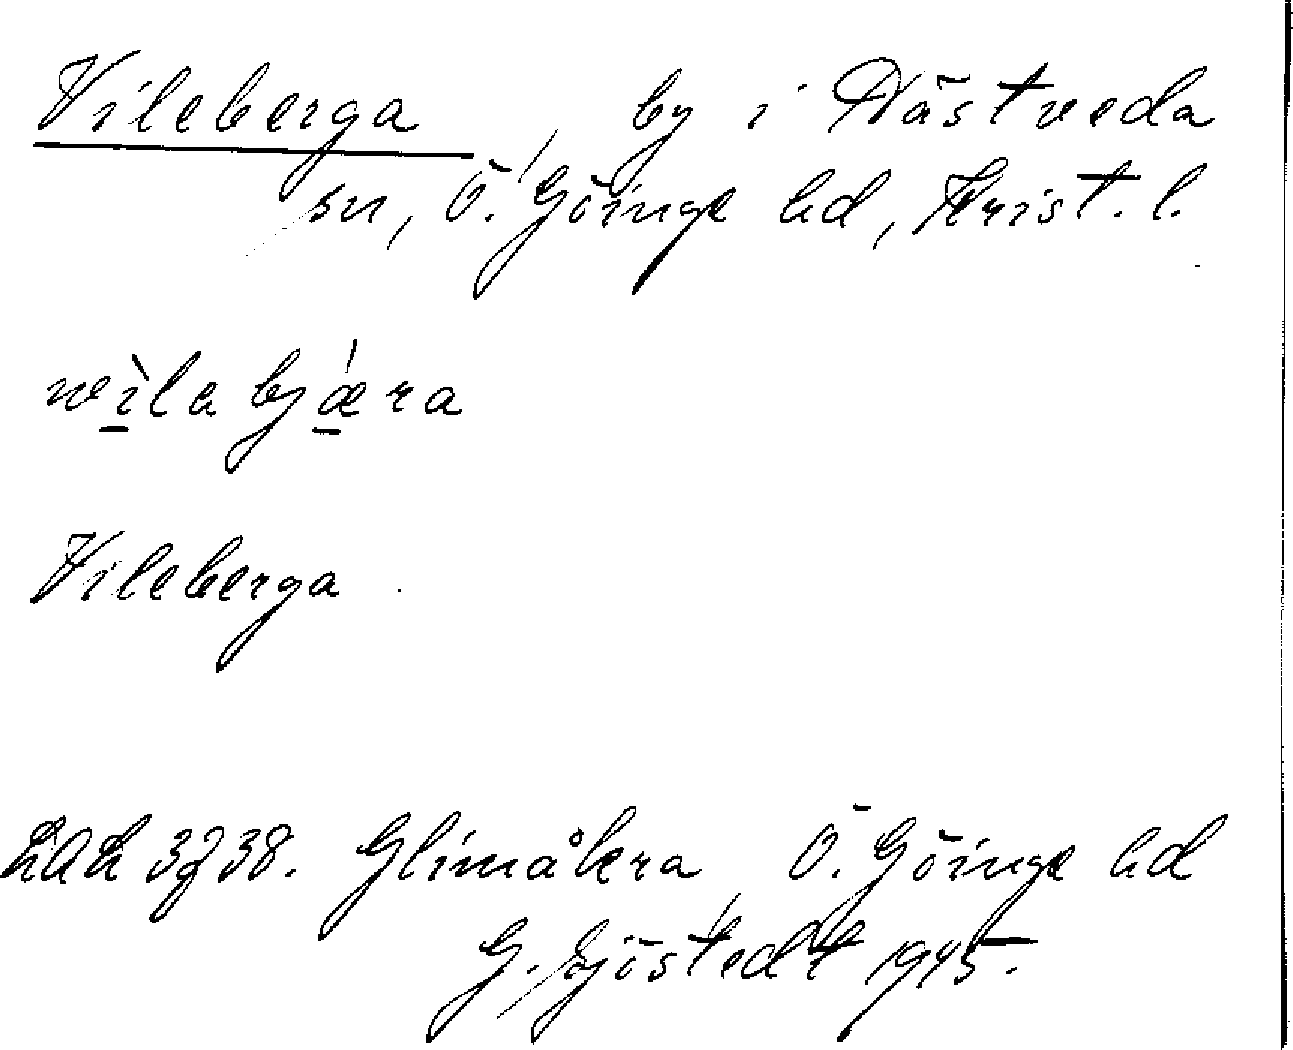 Vileberga, by i Nästveda
sn, Ö. Göinge hd, Krist. l.
wìlabjǽra
Vileberga
3738. Glimåkra, Ö. Göinge hd
G. Sjöstedt 1945.